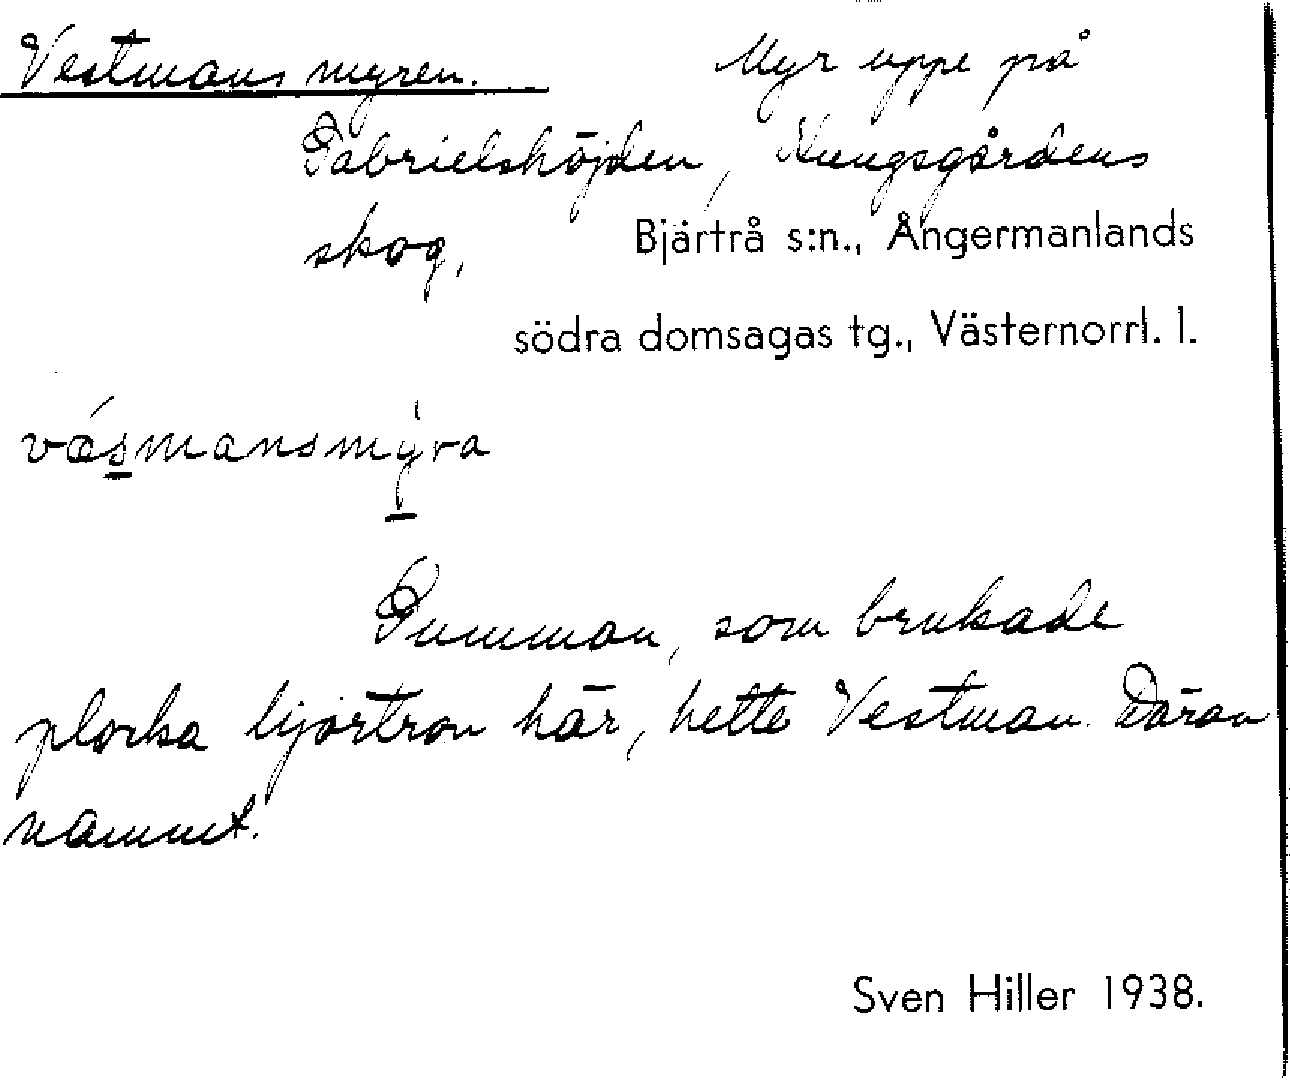 Vestmansmyren. Myr uppe på
Gabrielshöjden, Kungsgårdens
skog, Bjärtrå s:n., Ångermanlands
södra domsagas tg., Västernorrl. l.
væ´smansmy`ra
Gumman, som brukade
plocka hjortron här, hette Vestman. Därav
namnet.
Sven Hiller 1938.